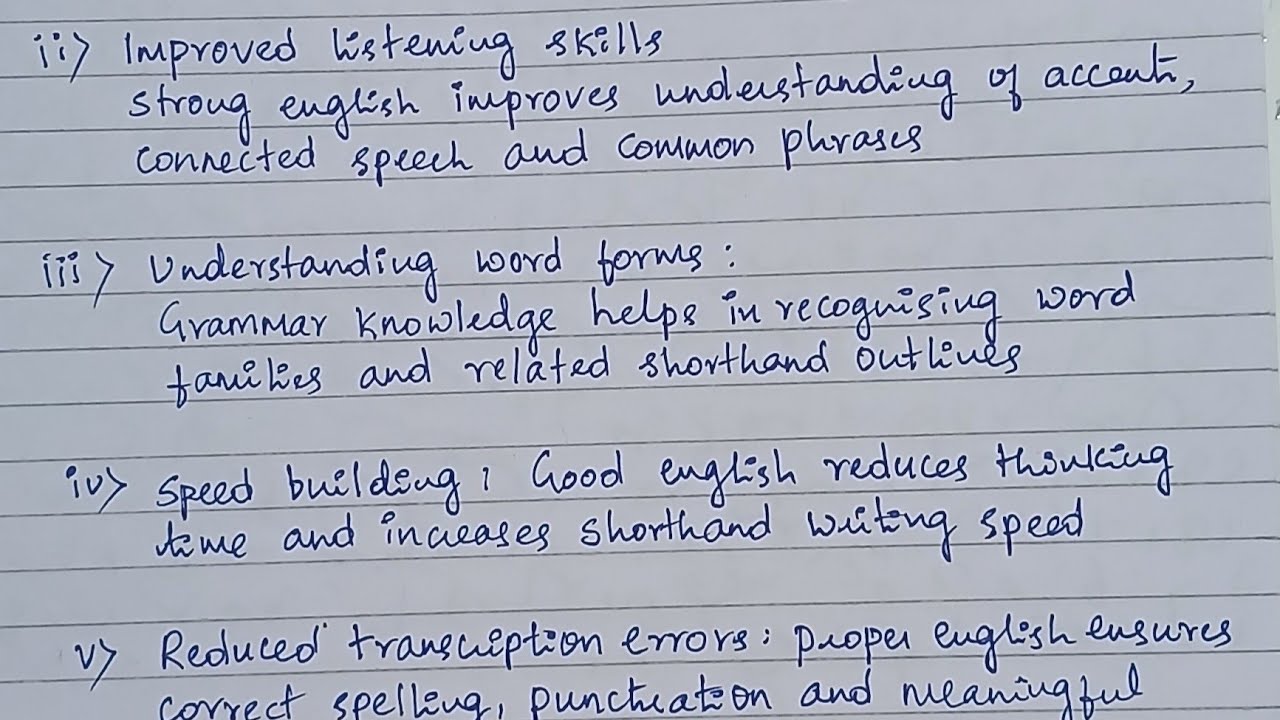 ii) Improved listening skills
strong english improves understanding of accent,
connected speech and common phrases
iii) Understanding word forms:
Grammar knowledge helps in recognising word
families and related shorthand outlines
iv) Speed building: Good english reduces thinking
time and increases shorthand writing speed
v) Reduced transcription errors: proper english ensures
correct spelling, punctuation and meaningful